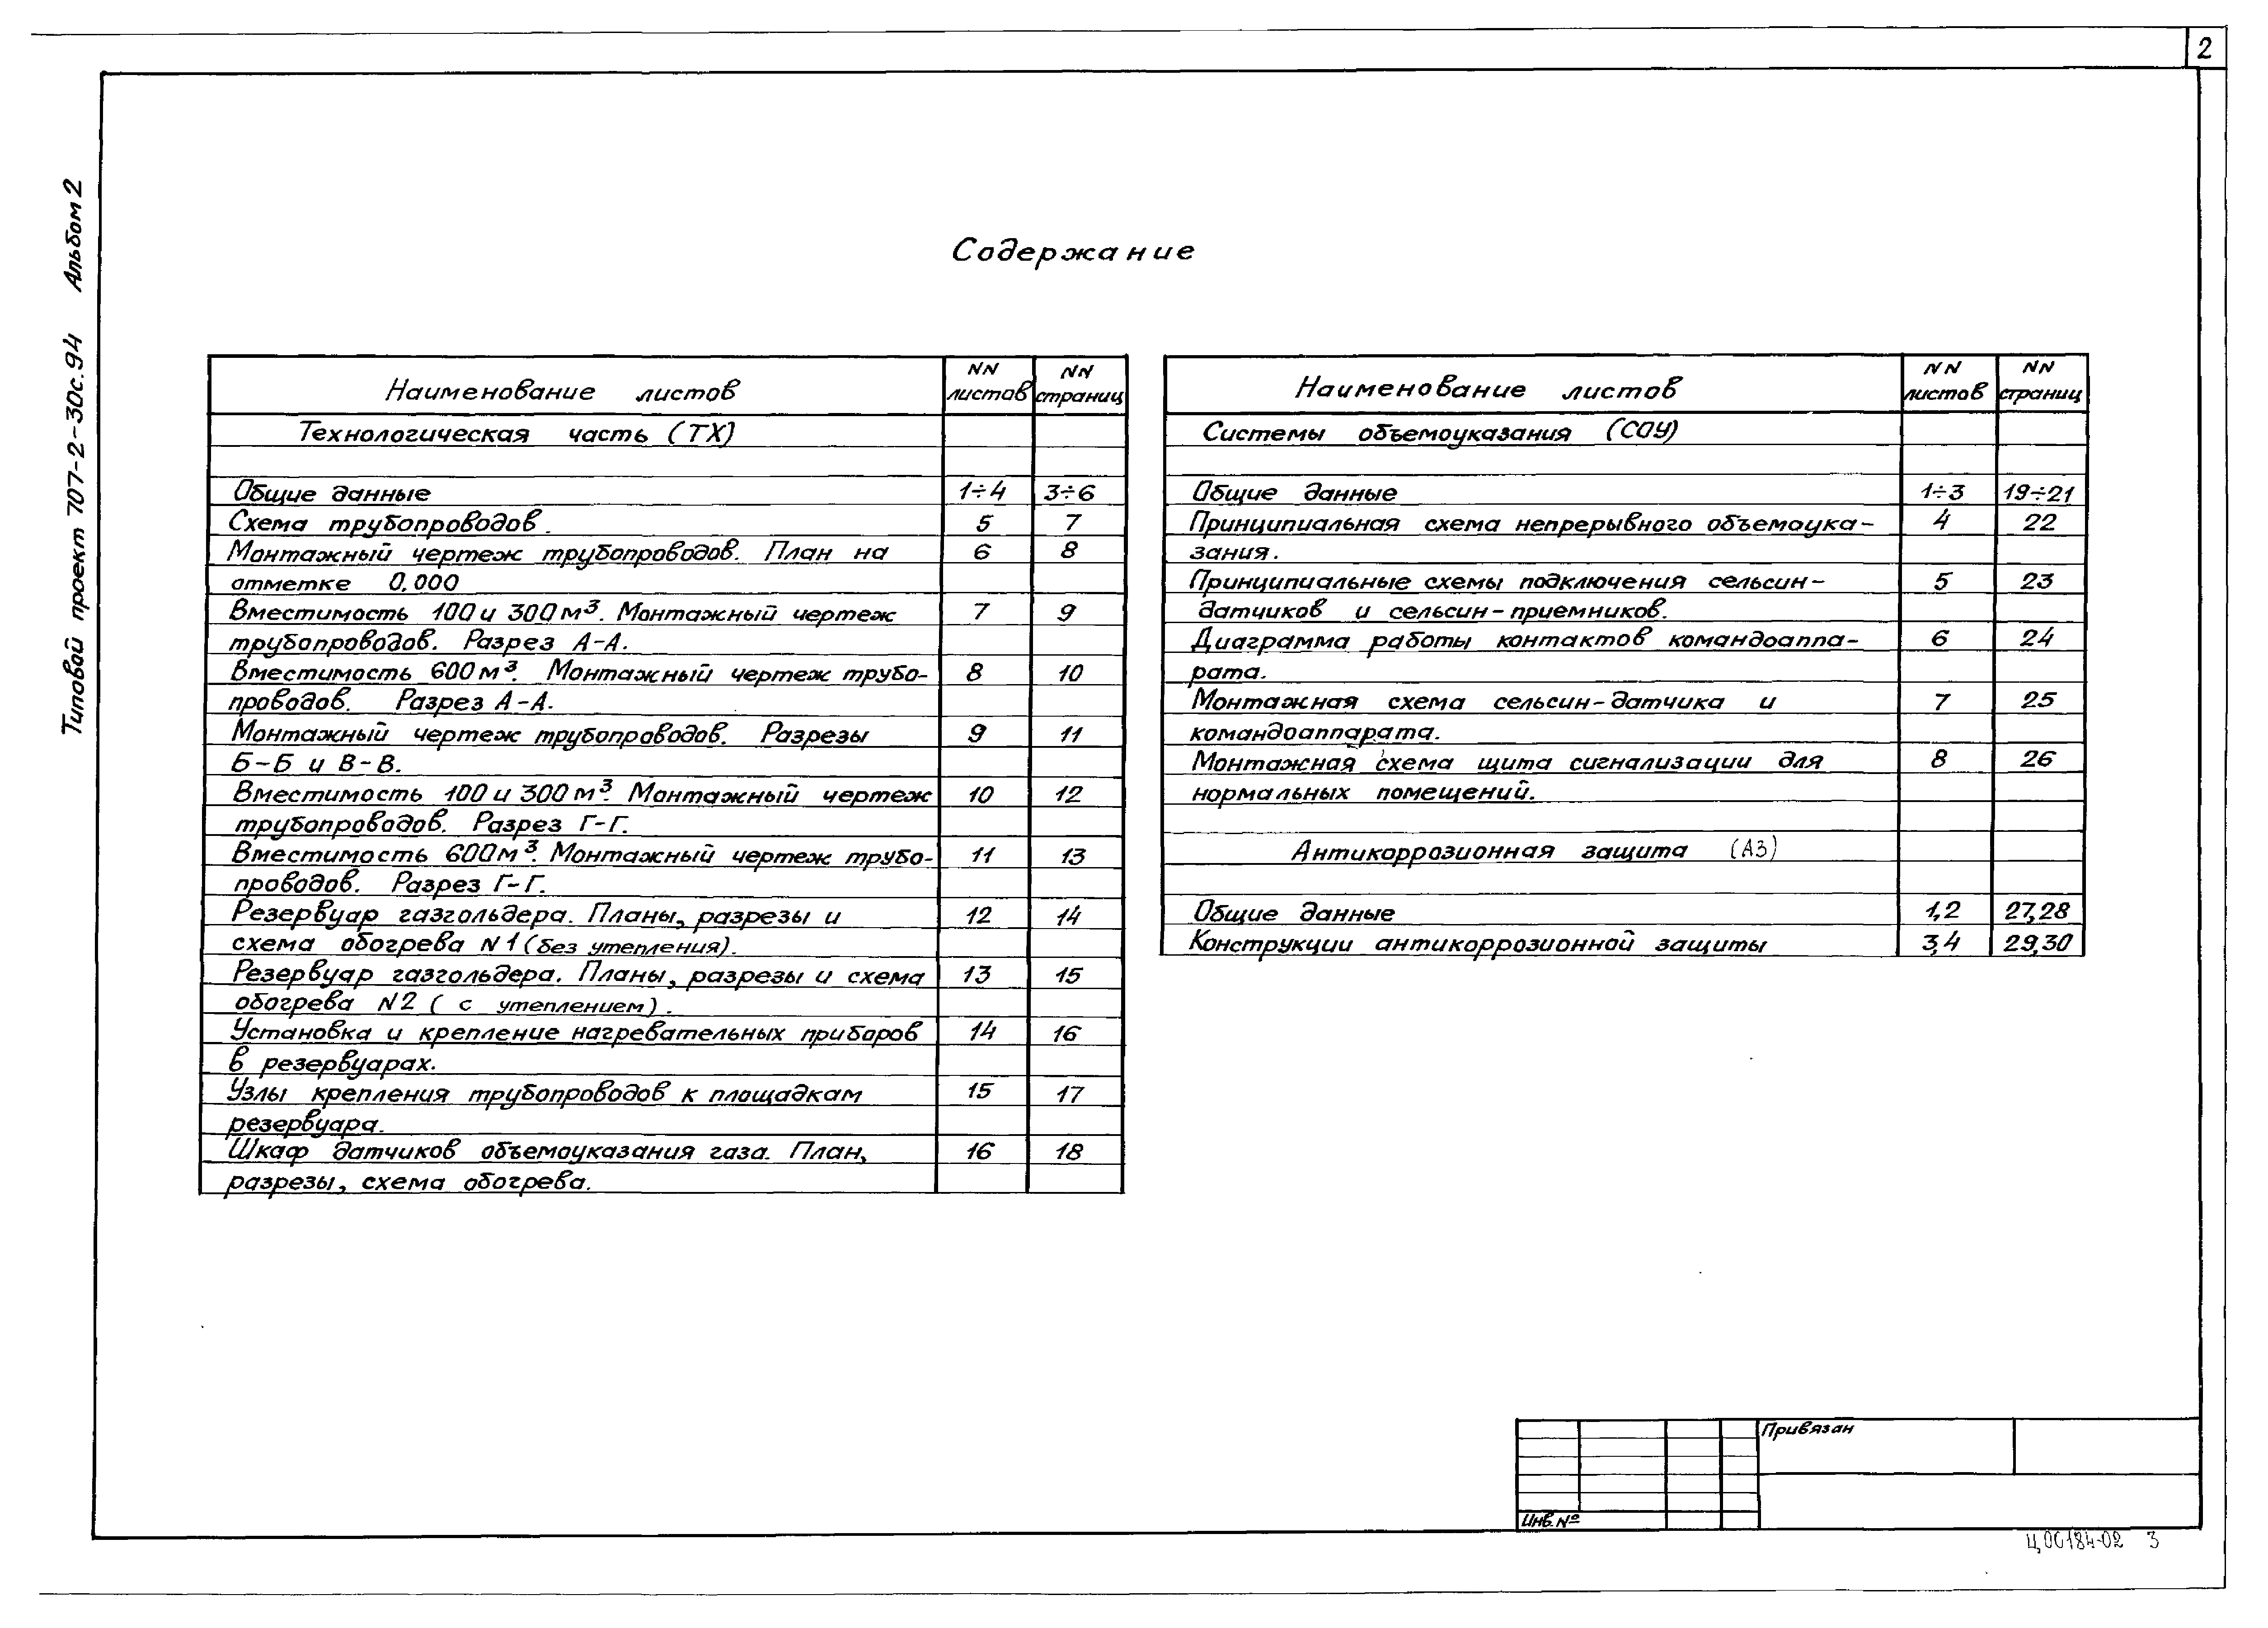 2
Типовой проект 707-2-30с.94 Альбом 2
Содержание
Наименование листов NN листов NN страниц
Технологическая часть (ТХ)
Общие данные 1÷4 3÷6
Схема трубопроводов. 5 7
Монтажный чертеж трубопроводов. План на 6 8
отметке 0,000
Вместимость 100 и 300 м³. Монтажный чертеж 7 9
трубопроводов. Разрез А-А.
Вместимость 600 м³. Монтажный чертеж трубо- 8 10
проводов. Разрез А-А.
Монтажный чертеж трубопроводов. Разрезы 9 11
Б-Б и В-В.
Вместимость 100 и 300 м³. Монтажный чертеж 10 12
трубопроводов. Разрез Г-Г.
Вместимость 600 м³. Монтажный чертеж трубо- 11 13
проводов. Разрез Г-Г.
Резервуар газгольдера. Планы, разрезы и 12 14
схема обогрева N1 (без утепления).
Резервуар газгольдера. Планы, разрезы и схема 13 15
обогрева N2 ( с утеплением).
Установка и крепление нагревательных приборов 14 16
в резервуарах.
Узлы крепления трубопроводов к площадкам 15 17
резервуара.
Шкаф датчиков объемоуказания газа. План, 16 18
разрезы, схема обогрева.
Наименование листов NN листов NN страниц
Системы объемоуказания (СОУ)
Общие данные 1÷3 19÷21
Принципиальная схема непрерывного объемоука- 4 22
зания.
Принципиальные схемы подключения сельсин- 5 23
датчиков и сельсин-приемников.
Диаграмма работы контактов командоаппа- 6 24
рата.
Монтажная схема сельсин-датчика и 7 25
командоаппарата.
Монтажная схема щита сигнализации для 8 26
нормальных помещений.
Антикоррозионная защита (АЗ)
Общие данные 1,2 27,28
Конструкции антикоррозионной защиты 3,4 29,30
Привязан
Инв. №
Ц00184-02 3